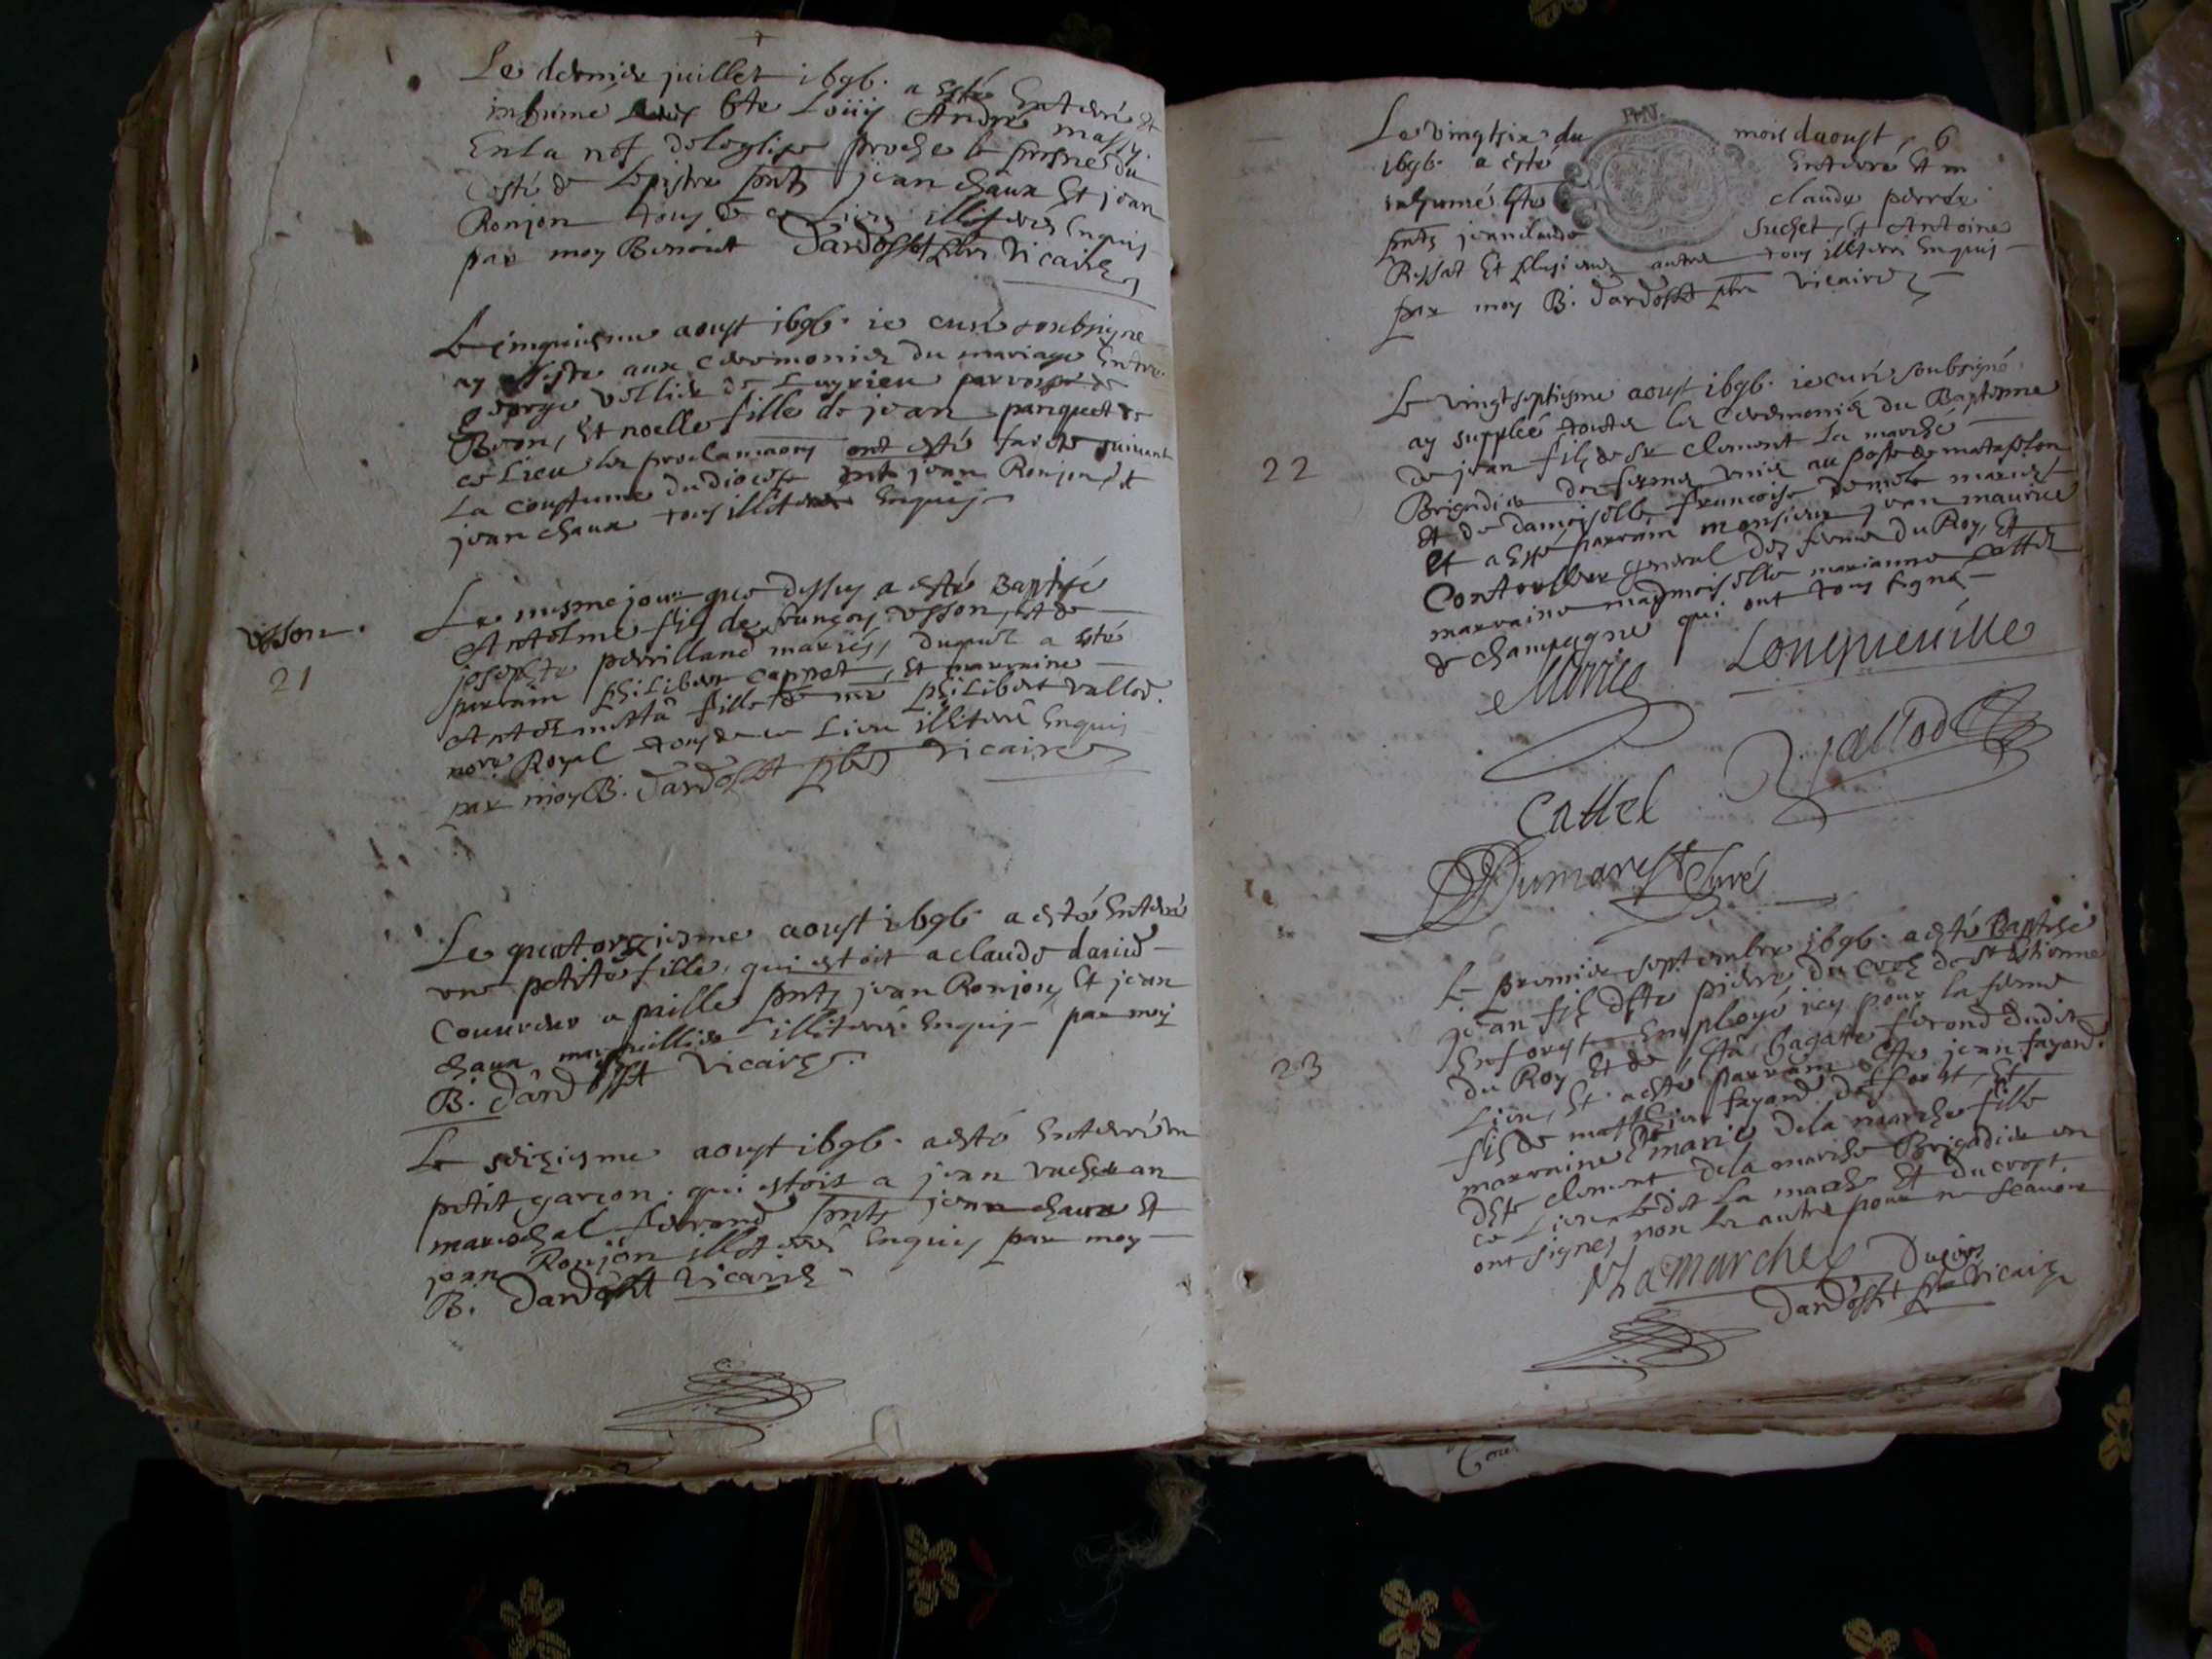 Le dernier juillet 1696. a esté Enterré et
inhumé Louys André
En la nef de leglise proche le
costé de Lepistre pnts jean chaux Et jean
Ronjon tous de ce Lieu illiterés Enquis
par moy Benoict Dardosset pbre vicaire
Le cinquiesme aoust 1696. ie curé soubsigné
ay assisté aux ceremonies du mariage Entre
george de Leyrieu parroisse de
Et noelle fille de jean panquet de
ce Lieu les proclamaons ont esté faictes suivant
La coustume du diocese pnts jean Ronjon, Et
jean chaux tous illiterés Enquis
visson.
21
Le mesme jour que dessus a esté Baptisé
Antelme fils de françois visson, Et de
josephte perrilland mariés, duquel a esté
parrain philibert cappet, Et marraine
fille de me philibert vallod.
nore Royal tous de ce Lieu illiterés Enquis
par moy B. Dardosset pbre vicaire
Le quatorziesme aoust 1696. a esté Enterré
une petite fille, qui estoit a claude david
Couvreur a paille pnts jean Ronjon, Et jean
chaux illiterés Enquis par moy
B. Dardosset vicaire.
Le seiziesme aoust 1696. a esté Enterré un
petit garçon. qui estoit a jean vacheran
mareschal ferrand pnts jean chaux Et
jean Ronjon illiterés Enquis par moy
B. Dardosset vicaire
Le vingtsix du mois daoust, 6
1696. a esté Enterré Et in
inhumé hte claude perrée
pnts jeanclaude suchet, Et Antoine
Rossat Et plusieurs autres tous illiterés Enquis
par moy B. Dardosset pbre vicaire
22
Le vingtseptiesme aoust 1696. ie curé soubsigné
ay supplée toutes les ceremonies du Baptesme
de jean fils de Sr clement La marche
Brigadier des fermes unies au poste de matafelon
Et de damoiselle francoise
Et a esté parrain monsieur jean maurice
Controlleur general des fermes du Roy, Et
marraine madmoiselle marianne cattel
de champagne qui ont tous signé
Longueville
Vallod
Cattel
Dumarest Curé
23
Le premier septembre 1696. a esté Baptisé
jean fils dhte pierre du cros de St Estienne
En forest Employé icy pour la ferme
du Roy Et de hta ferond dudit
Lieu, Et a esté parrain hte jean fayard.
fils de matthieu fayard de forest, Et
marraine marie de la marche fille
dhte clement de la marche Brigadier en
ce Lieu, Ledit La marche Et du crost
ont signes, non les autres pour ne scavoir
La marche Ducros
Dardosset pbre vicaire